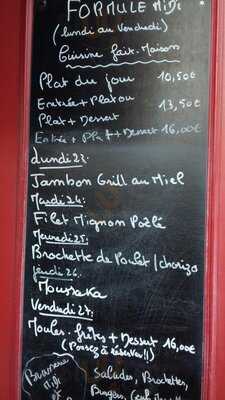 FORMULE MIDI
(lundi au Vendredi)
Cuisine fait. Maison
Plat du jour 10,50€
Entrée + Plat ou 13,50€
Plat + Dessert
Entrée + Plat + Dessert 16,00€
Lundi 23:
Jambon Grill au Miel
Mardi 24:
Filet Mignon Poêlé
Mercredi 25:
Brochette de Poulet / chorizo
Jeudi 26:
Moussaka
Vendredi 27:
Moules. frites + Dessert 16,00€
(Pensez à réserver!!)
Brasserie
Midi
et
Salades, Brochettes,
Burgers,